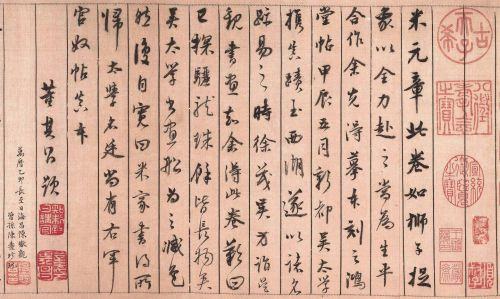 古希天子
米元章此卷如獅子捉
象以全力赴之當為生平
合作余先得摹本刻之鴻
堂帖甲辰五月新都吳太學
攜真蹟至西湖遂以諸名
跡易之時徐茂吳方詣吳
觀書畫知余得此卷歎曰
已探驪龍珠餘皆長物矣
吳太學書畫船為之減色
然復自寬曰米家書得所
歸太學名廷尚有右軍
官奴帖真本
董其昌題
萬曆乙卯長至日海昌陳瓛觀
曾孫陳